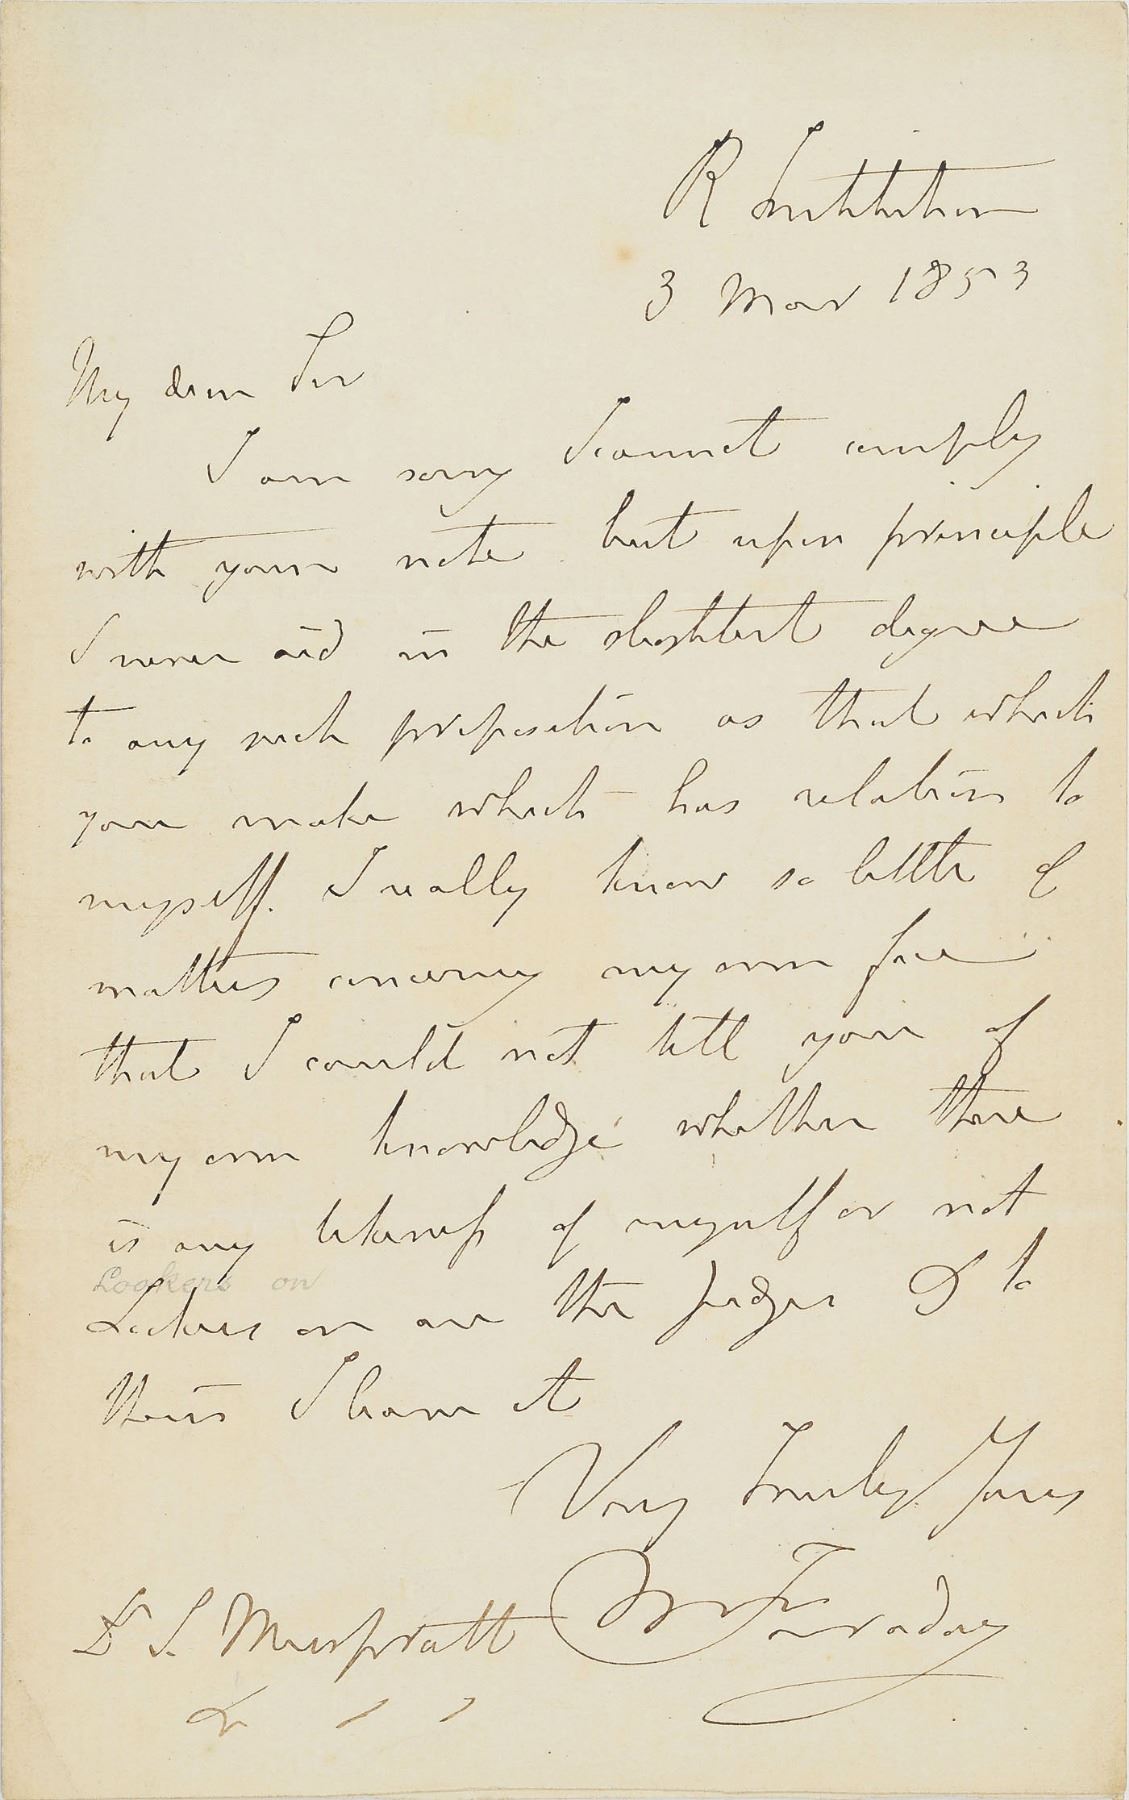 R Institution
3 Mar 1853
My dear Sir
I am sorry I cannot comply
with your note but upon principle
I never aid in the slightest degree
to any such proposition as that which
you make which has relation to
myself. I really know so little of
matters concerning my own face
that I could not tell you of
my own knowledge whether there
is any likeness of myself or not
Lookers on
Lookers on are the judges & to
them I leave it
Very Truly Yours
M Faraday
Dr S. Muspratt
&c " "